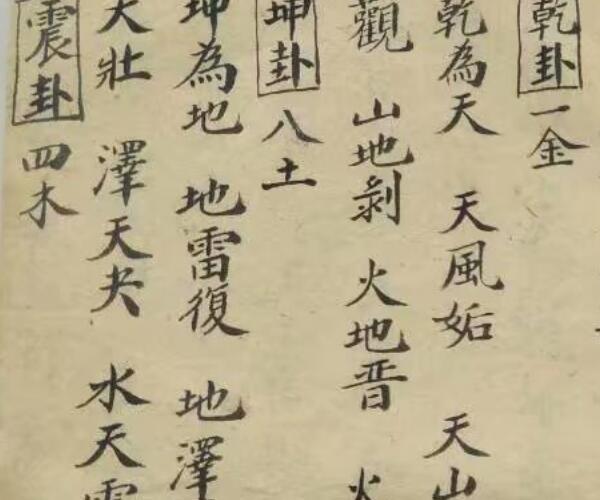 乾卦 一金
乾為天 天風姤 天山
觀 山地剝 火地晋 火
坤卦 八土
坤為地 地雷復 地澤
大壯 澤天夬 水天需
震卦 四木